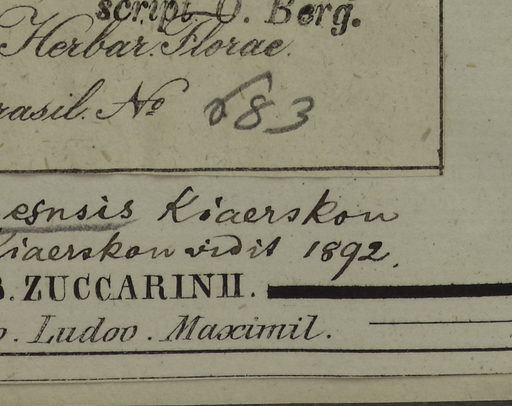 script O. Berg.
Herbar. Florae
rasil. No 683
esnsis Kiaerskou
Kiaerskou vidit 1892.
B. ZUCCARINII.
o. Ludov. Maximil.